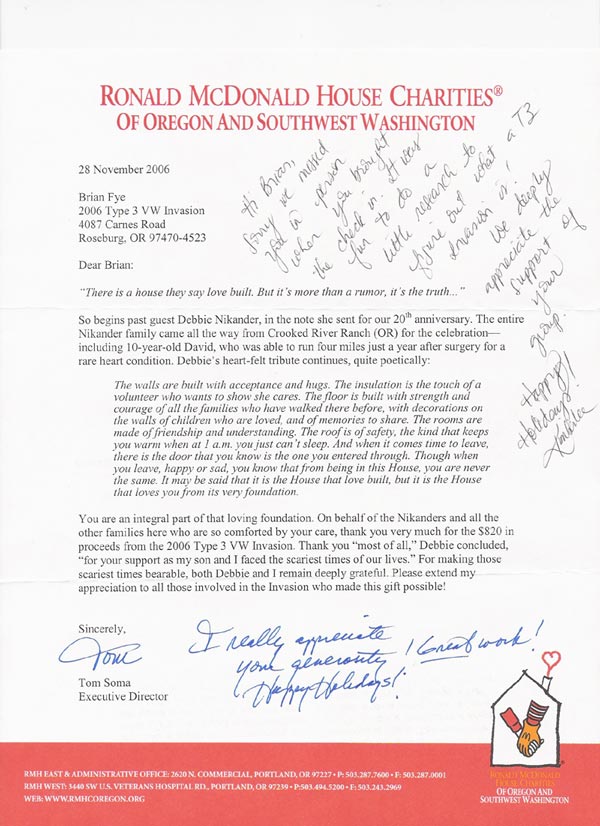 RONALD MCDONALD HOUSE CHARITIES®
OF OREGON AND SOUTHWEST WASHINGTON
28 November 2006
Brian Fye
2006 Type 3 VW Invasion
4087 Carnes Road
Roseburg, OR 97470-4523
Hi Brian,
Sorry we missed
you in person
when you brought
the check in. It was
fun to do a
little research to
figure out what a T3
Invasion is!
We deeply
appreciate the
support of
your
group.
Happy
Holidays!
Dear Brian:
"There is a house they say love built. But it's more than a rumor, it's the truth..."
So begins past guest Debbie Nikander, in the note she sent for our 20th anniversary. The entire
Nikander family came all the way from Crooked River Ranch (OR) for the celebration—
including 10-year-old David, who was able to run four miles just a year after surgery for a
rare heart condition. Debbie's heart-felt tribute continues, quite poetically:
The walls are built with acceptance and hugs. The insulation is the touch of a
volunteer who wants to show she cares. The floor is built with strength and
courage of all the families who have walked there before, with decorations on
the walls of children who are loved, and of memories to share. The rooms are
made of friendship and understanding. The roof is of safety, the kind that keeps
you warm when at 1 a.m. you just can't sleep. And when it comes time to leave,
there is the door that you know is the one you entered through. Though when
you leave, happy or sad, you know that from being in this House, you are never
the same. It may be said that it is the House that love built, but it is the House
that loves you from its very foundation.
You are an integral part of that loving foundation. On behalf of the Nikanders and all the
other families here who are so comforted by your care, thank you very much for the $820 in
proceeds from the 2006 Type 3 VW Invasion. Thank you "most of all," Debbie concluded,
"for your support as my son and I faced the scariest times of our lives." For making those
scariest times bearable, both Debbie and I remain deeply grateful. Please extend my
appreciation to all those involved in the Invasion who made this gift possible!
Sincerely,
Tom
Tom Soma
Executive Director
I really appreciate
your generosity! Great work!
Happy Holidays!
RONALD MCDONALD
HOUSE CHARITIES
OF OREGON AND
SOUTHWEST WASHINGTON
RMH EAST & ADMINISTRATIVE OFFICE: 2620 N. COMMERCIAL, PORTLAND, OR 97227 • P: 503.287.7600 • F: 503.287.0001
RMH WEST: 3440 SW U.S. VETERANS HOSPITAL RD., PORTLAND, OR 97239 • P:503.494.5200 • F: 503.243.2969
WEB: WWW.RMHCOREGON.ORG